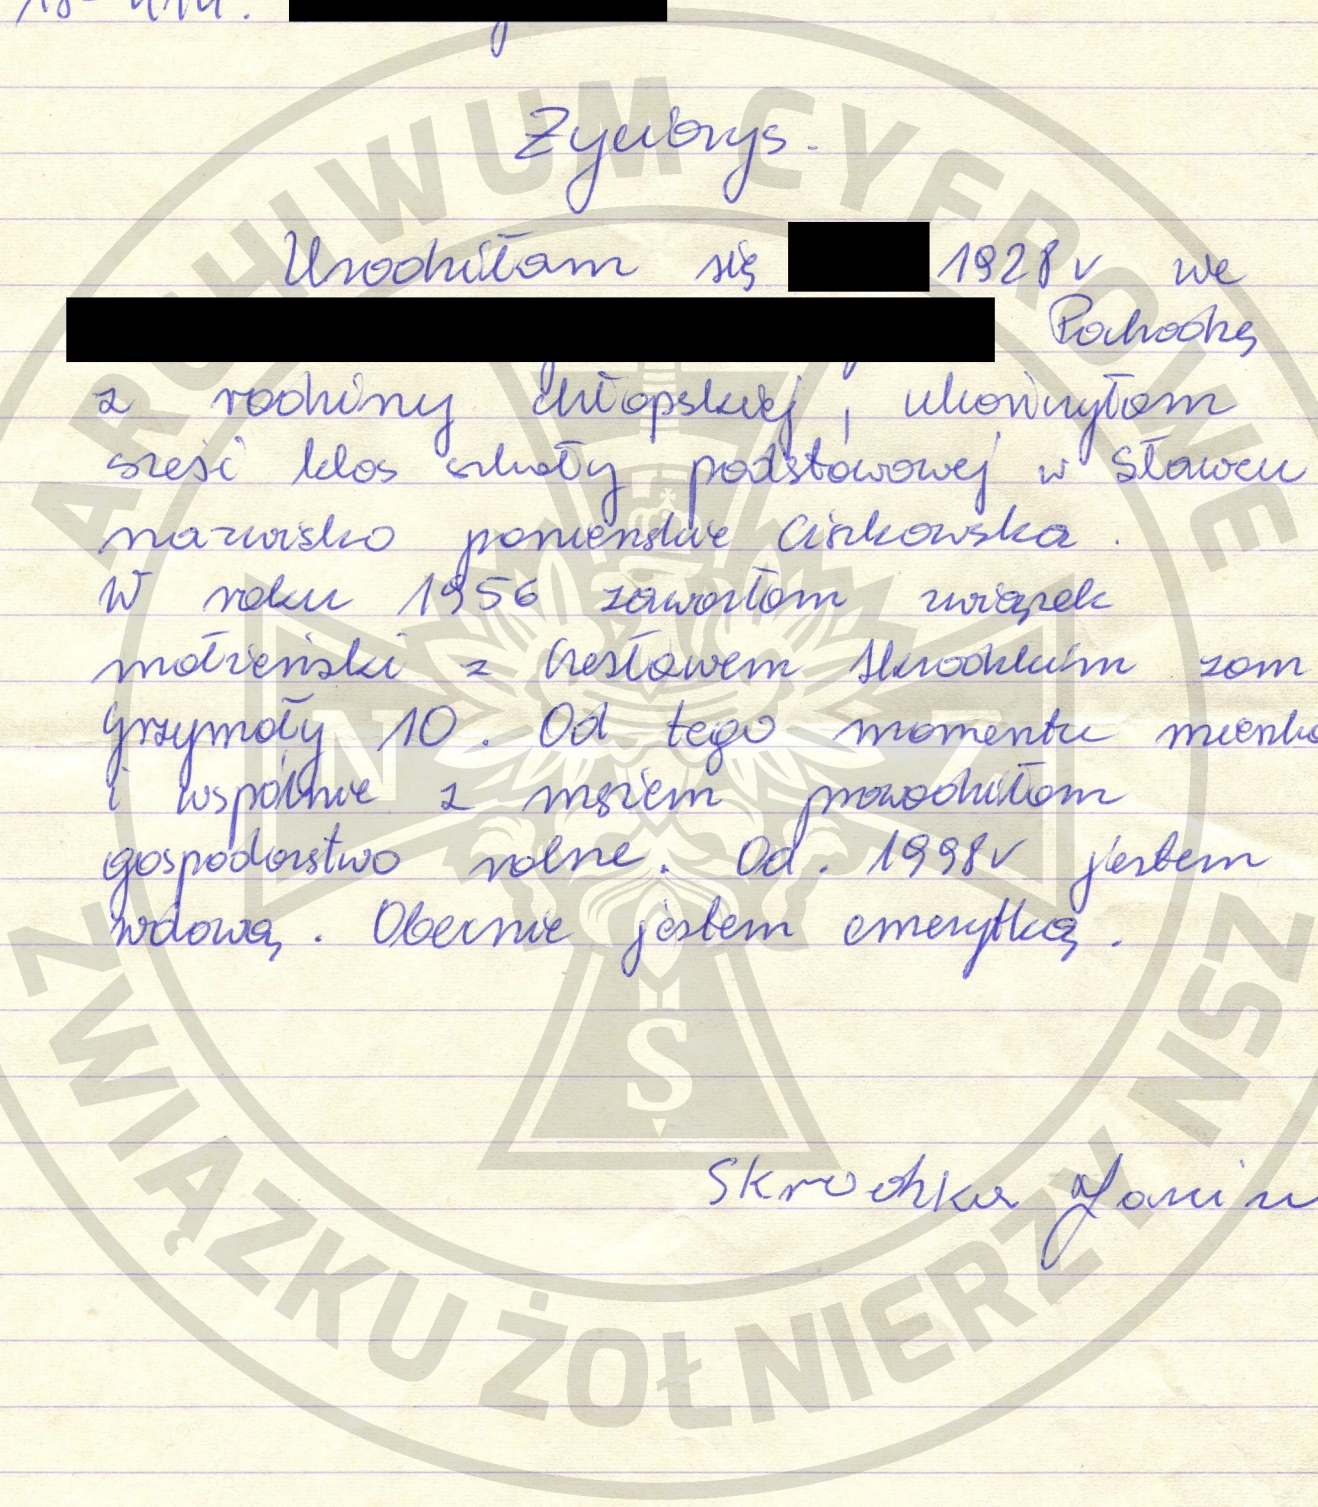 18-414.
Życiorys.
Urodziłam się 1928r we
Pochodzę
z rodziny chłopskiej, ukończyłam
sześć klas szkoły podstawowej w Sławcu
nazwisko panieńskie Ciszkowska.
W roku 1956 zawarłam związek
małżeński z Czesławem Skrodzkim zam
Grzymały 10. Od tego momentu mieszka
i wspólnie z mężem prowadziłam
gospodarstwo rolne. Od. 1998r jestem
wdową. Obecnie jestem emerytką.
Skrodzka Janin
ARCHIWUM CYFROWE
ZWIĄZKU ŻOŁNIERZY NSZ
N
S
Z